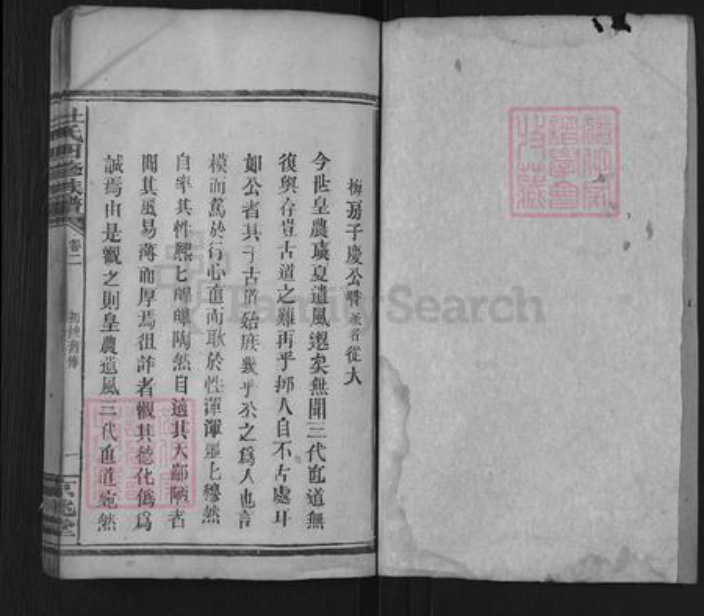 梅房子慶公醫派行從大
今世皇農虞夏遺風邈矣無聞三代直道無
復與存豈古道之難再乎抑人自不古處耳
如公者其于古道殆庶幾乎公之爲人也言
模而篤於行心直而耿於性渾渾噩上穆然
自率其性熙上皥皥陶然自適其天鄙陋者
聞其風易薄而厚焉徂詐者觀其德化僞爲
誠焉由是觀之則皇農遺風三代直道宛然
杜氏四修族譜
卷二
初修舊傳
一
京兆堂
FamilySearch